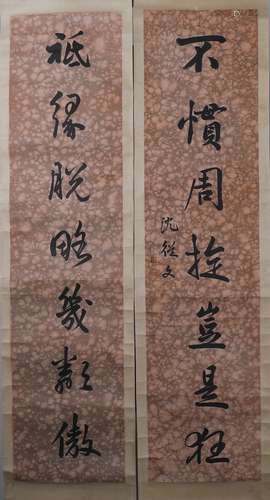 不慣周旋豈是狂
沈從文
祗緣脫略幾類傲